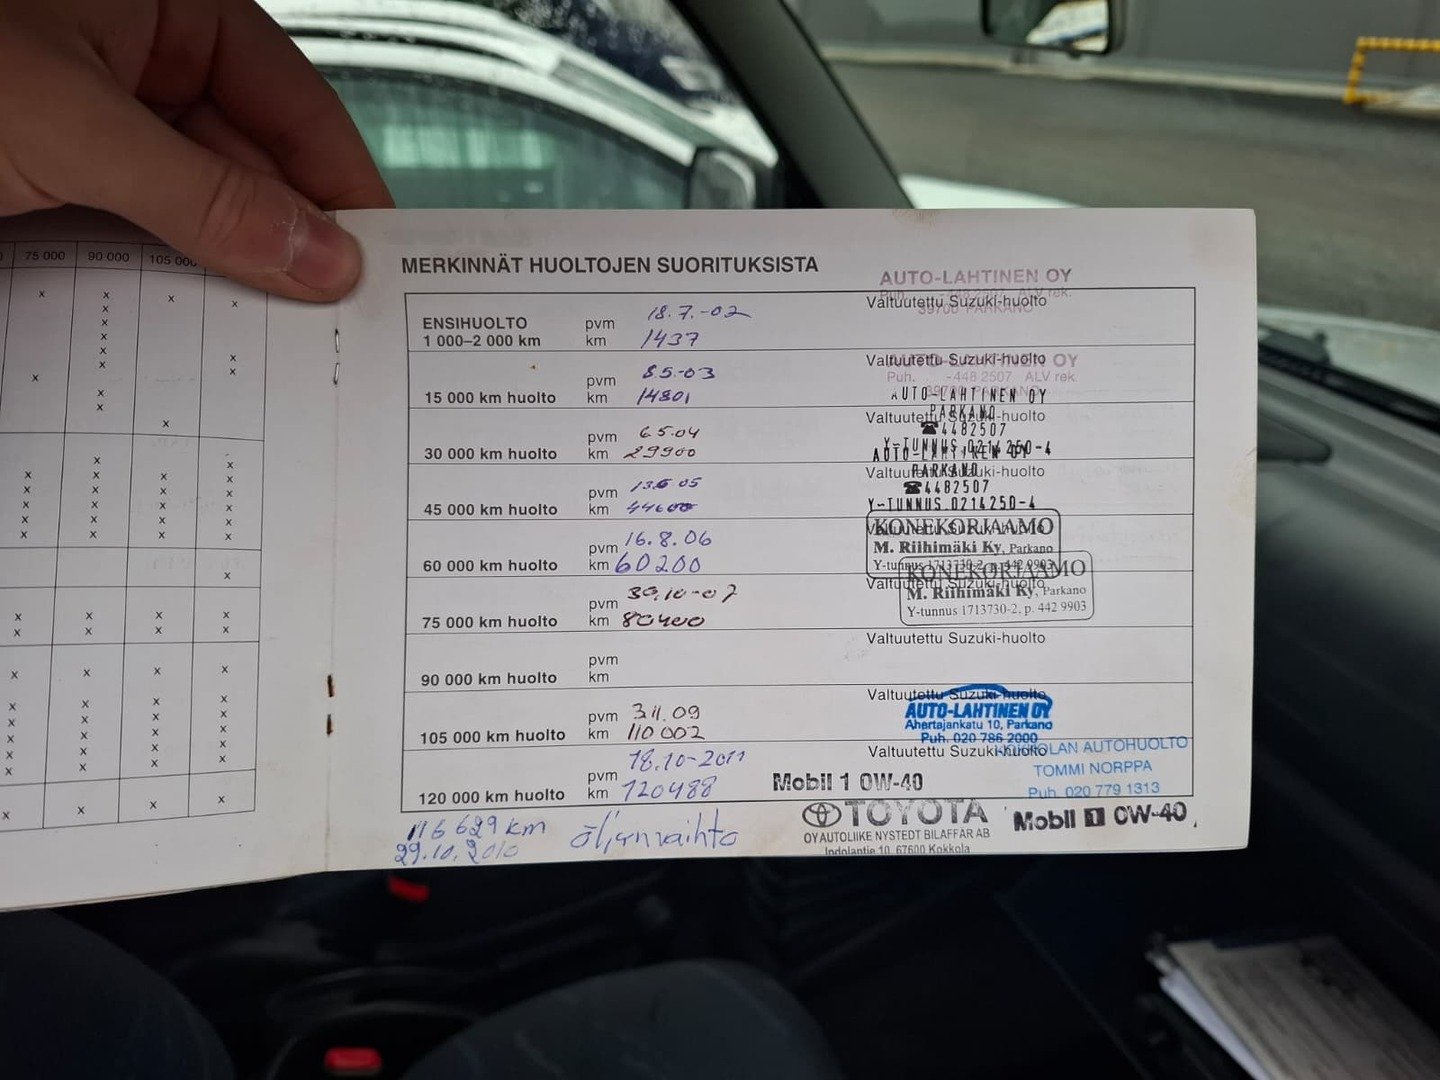 75 000 90 000 105 000
MERKINNÄT HUOLTOJEN SUORITUKSISTA
AUTO-LAHTINEN OY
Valtuutettu Suzuki-huolto
39700 PARKANO
ENSIHUOLTO
1 000–2 000 km
pvm 18.7.-02
km 1437
Valtuutettu Suzuki-huolto
Puh. -448 2507 ALV rek.
15 000 km huolto
pvm 8 5.-03
km 14801
AUTO-LAHTINEN OY
PARKANO
Valtuutettu Suzuki-huolto
☎4482507
Y-TUNNUS 0214250-4
30 000 km huolto
pvm 6.5.04
km 29900
AUTO-LAHTINEN OY
PARKANO
Valtuutettu Suzuki-huolto
☎4482507
Y-TUNNUS 0214250-4
45 000 km huolto
pvm 13.6 05
km 44600
KONEKORJAAMO
M. Riihimäki Ky, Parkano
Y-tunnus 1713730-2, p. 442 9903
60 000 km huolto
pvm 16.8.06
km 60200
KONEKORJAAMO
Valtuutettu Suzuki-huolto
M. Riihimäki Ky, Parkano
Y-tunnus 1713730-2, p. 442 9903
75 000 km huolto
pvm 30.10-07
km 80400
Valtuutettu Suzuki-huolto
90 000 km huolto
pvm
km
Valtuutettu Suzuki-huolto
AUTO-LAHTINEN OY
Ahertajankatu 10, Parkano
Puh. 020 786 2000
105 000 km huolto
pvm 3.11.09
km 110 002
Valtuutettu Suzuki-huolto
AUTOHUOLTO
TOMMI NORPPA
Puh. 020 779 1313
120 000 km huolto
pvm 18.10-2011
km 120488
Mobil 1 0W-40
116 629 km öljynvaihto
29.10.2010
TOYOTA
OY AUTOLIIKE NYSTEDT BILAFFÄR AB
Indolantie 10, 67600 Kokkola
Mobil 1 0W-40